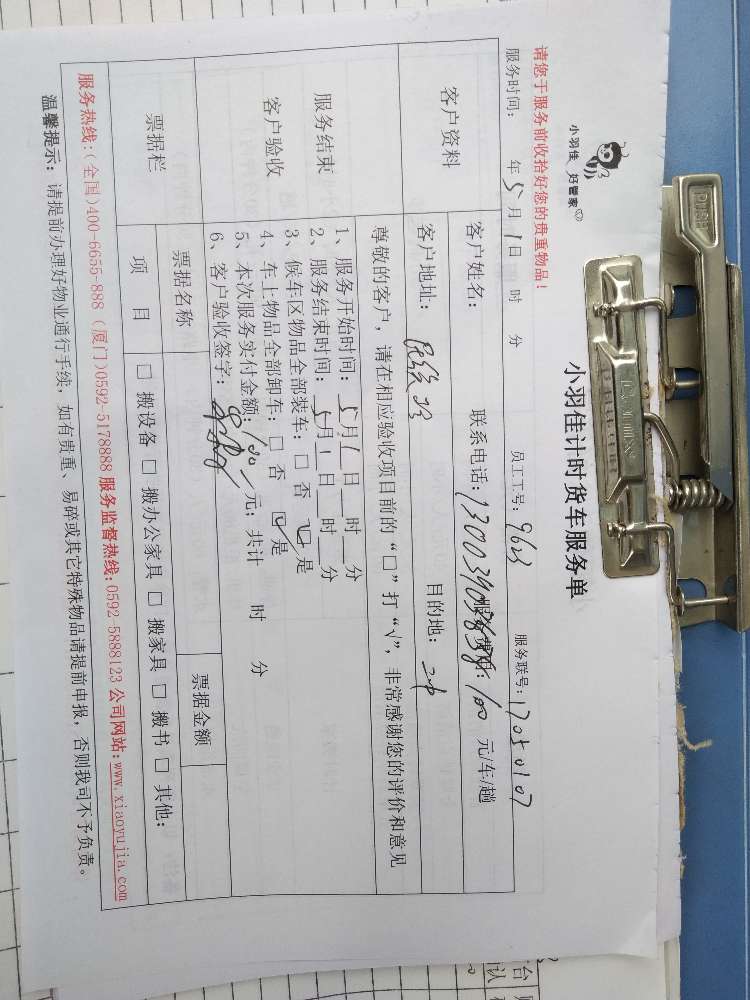 PUSH
小羽佳 好管家
小羽佳计时货车服务单
请您于服务前收拾好您的贵重物品！
员工工号：9623 服务联号：17050107
服务时间： 年5月1日 时 分
客户资料
客户姓名： 联系电话： 服务费用：100 元/车/趟
客户地址： 目的地：
尊敬的客户，请在相应验收项目前的“□”打“√”，非常感谢您的评价和意见
服务结束
客户验收
1、服务开始时间：5月1日 时 分
2、服务结束时间：5月1日 时 分
3、候车区物品全部装车：□ 否 ☑ 是
4、车上物品全部卸车：□ 否 ☑ 是
5、本次服务实付金额：100元；共计 时 分
6、客户验收签字：
票据栏
票据名称 票据金额
项 目 □ 搬设备 □ 搬办公家具 □ 搬家具 □ 搬书 □ 其他：
服务热线：(全国)400-6655-888 (厦门)0592-5178888 服务监督热线：0592-5888123 公司网站：www.xiaoyujia.com
温馨提示：请提前办理好物业通行手续，如有贵重、易碎或其它特殊物品请提前申报，否则我司不予负责。